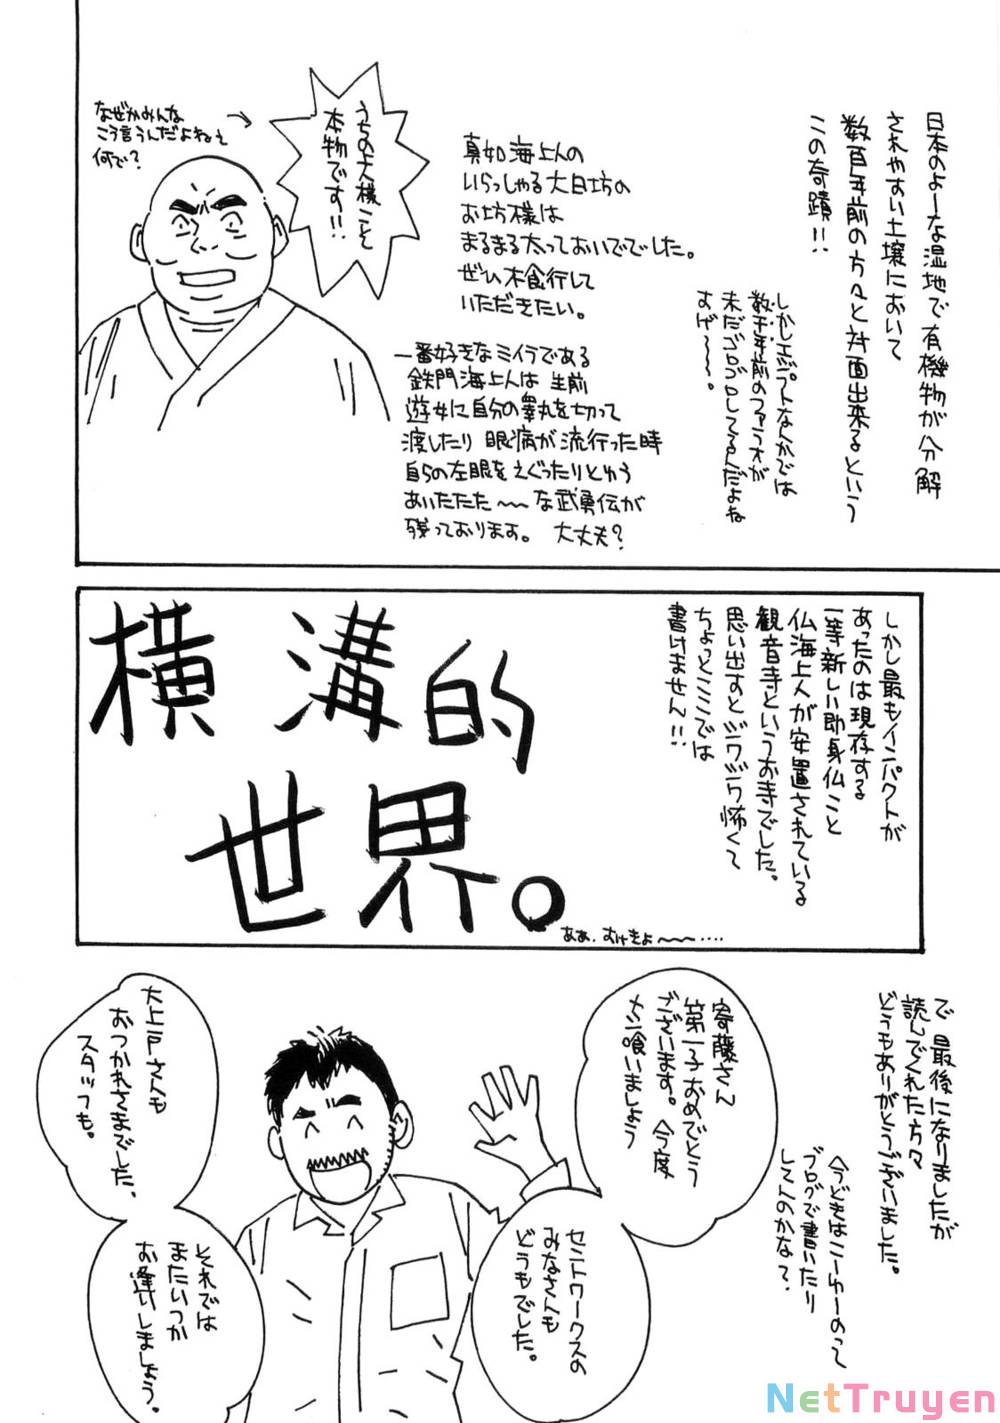 日本のよーな湿地で有機物が分解
されやすい土壌において
数百年前の方々と対面出来るという
この奇蹟!!
しかしエジプトなんかでは
数千年前のファラオが
未だゴロゴロしてるんだよね
すげ〜〜〜。
真如海上人の
いらっしゃる大日坊の
お坊様は
まるまる太っておいででした。
ぜひ木食行して
いただきたい。
うちの上人様こそ
本物です!!
なぜかみんな
こう言うんだよねぇ
何で?
一番好きなミイラである
鉄門海上人は生前
遊女に自分の睾丸を切って
渡したり眼病が流行った時
自らの左眼をえぐったりとゆう
あいたたた〜〜な武勇伝が
残っております。大丈夫?
しかし最もインパクトが
あったのは現存する
一等新しい即身仏こと
仏海上人が安置されている
観音寺というお寺でした。
思い出すとジワジワ怖くて
ちょっとここでは
書けません!!
横溝的
世界。
ああ、むけきよ〜〜‥‥
で最後になりましたが
読んでくれた方々
どうもありがとうございました。
今どきはこーゆーのって
ブログで書いたり
してんのかな?
寄藤さん
第一子おめでとう
ございます。今度
メシ喰いましょう
セントワークスの
みなさんも
どうもでした。
大上戸さんも
おつかれさまでした、
スタッフも。
それでは
またいつか
お逢いしましょう。
NetTruyen